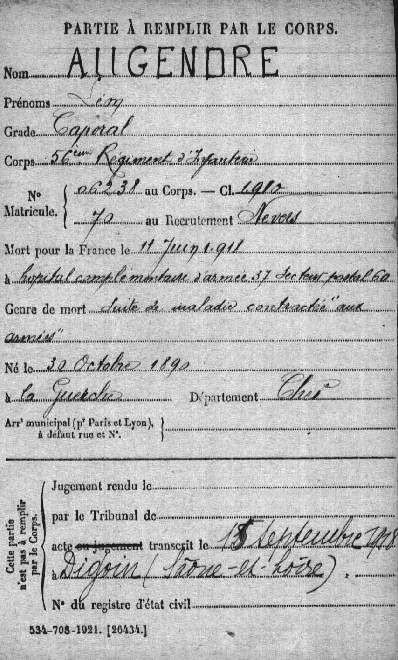 PARTIE À REMPLIR PAR LE CORPS.
Nom AUGENDRE
Prénoms Léon
Grade Caporal
Corps 56eme Régiment d'Infanterie
No Matricule. { 06238 au Corps. — Cl. 1910
70 au Recrutement Nevers
Mort pour la France le 11 Juin 1918
à hôpital complémentaire d'armée 37 secteur postal 60
Genre de mort suite de maladie contractée "aux
armées"
Né le 30 Octobre 1890
à la Guerche Département Cher
Arrt municipal (pr Paris et Lyon),
à défaut rue et No.
Cette partie n'est pas à remplir par le Corps.
Jugement rendu le
par le Tribunal de
acte ou jugement transcrit le 15 septembre 1918
à Digoin (Saône-et-Loire)
No du registre d'état civil
534-708-1921. [26434.]